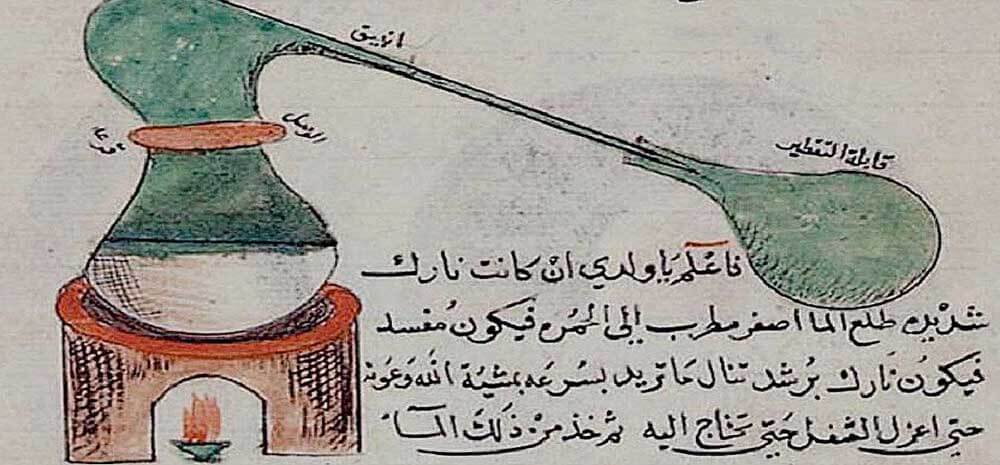 انبيق
الوصل
قابلة التقطير
فاعلم يا ولدي ان كانت نارك
شديده طلع الما اصفر مطرب الى الحمره فيكون مفسد
فيكون نارك برشد تنال ما تريد بسرعه بمشية الله وعونه
حتى اعزل الثفل حتى تحتاج اليه ثم خذ من ذلك المآء